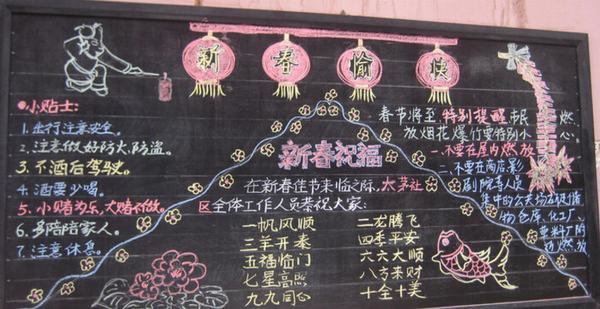 新春愉快
小贴士：
1.出行注意安全。
2.注意做好防火、防盗。
3.不酒后驾驶。
4.酒要少喝。
5.小赌为乐,大赌不做。
6.多陪陪家人。
7.注意休息。
新春祝福
在新春佳节来临之际,太茅社
区全体工作人员恭祝大家：
一帆风顺 二龙腾飞
三羊开泰 四季平安
五福临门 六六大顺
七星高照 八方来财
九九同心 十全十美
春节将至 特别提醒市民 燃
放烟花爆竹要特别小心。
一、不要在屋内燃放
二、不要在商店、影
剧院等人员
集中的公共场所及
物仓库、化工厂、
燃放